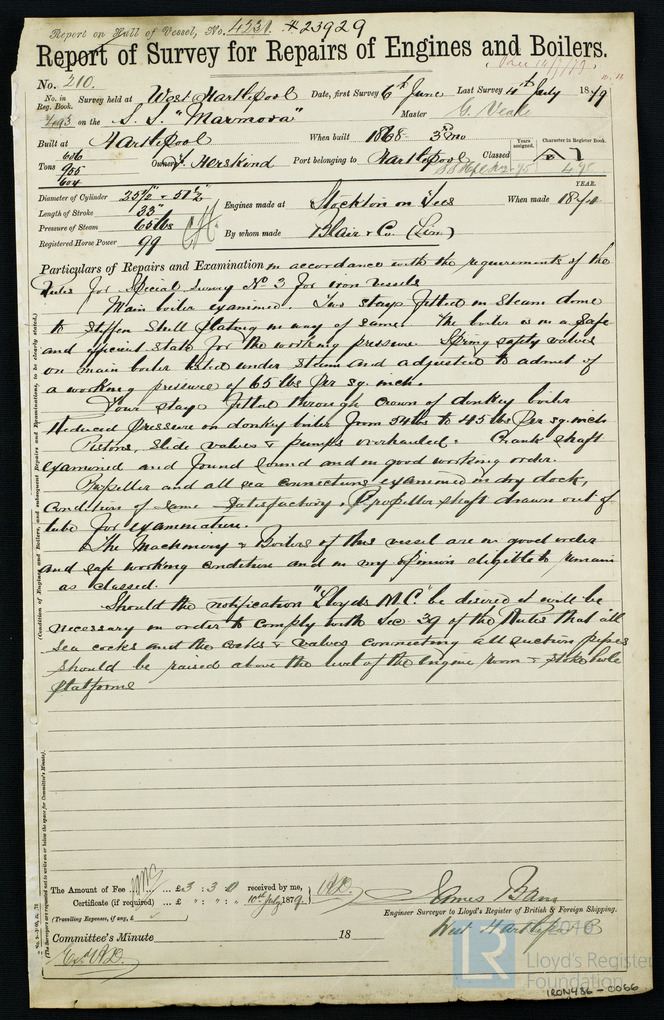 Report on Hull of Vessel, No. 4231. #23929
Report of Survey for Repairs of Engines and Boilers.
No. 210.
No. in Reg. Book. Survey held at West Hartlepool Date, first Survey 6th June Last Survey 4th July 1879
on the S.S. "Marmora" Master G. Veale
Built at Hartlepool When built 1868 - 3 mo
Years assigned. Character in Register Book.
Tons 955 604 Owners Herskind Port belonging to Hartlepool Classed A 1
Diameter of Cylinder
Length of Stroke 33" Engines made at Stockton on Tees When made YEAR.
Pressure of Steam 65 lbs
Registered Horse Power 99 By whom made Blair & Co. (Lim)
Particulars of Repairs and Examination in accordance with the requirements of the
Rules for Special Survey No 3 for iron vessels
Main boiler examined. Two stays fitted in steam dome
to stiffen shell plating in way of same. The boiler is in a safe
and efficient state for the working pressure. Spring safety valves
on main boiler tested under steam and adjusted to admit of
a working pressure of 65 lbs per sq. inch.
Four stays fitted through crown of donkey boiler
reduced pressure on donkey boiler from 54 lbs to 45 lbs per sq. inch
Pistons, slide valves & pumps overhauled. Crank shaft
examined and found sound and in good working order.
Propeller and all sea connections examined in dry dock,
condition of same satisfactory. Propeller shaft drawn out of
tube for examination.
The Machinery & Boilers of this vessel are in good order
and safe working condition and in my opinion eligible to remain
as classed.
Should the notification "Lloyds M.C." be desired it will be
necessary in order to comply with Sec 39 of the Rules that all
sea cocks and the cocks & valves connecting all suction pipes
should be raised above the level of the engine room & stoke hole
platforms
(Condition of Engines and Boilers, and subsequent Repairs and Examinations, to be clearly stated.)
(The Surveyors are requested not to write on or below the space for Committee's Minute.)
The Amount of Fee £3 : 3 : 0 received by me,
Certificate (if required) .. £ " : " : " 10th July 1879.
(Travelling Expenses, if any, £ )
James Bain
Engineer Surveyor to Lloyd's Register of British & Foreign Shipping.
West Hartlepool
Committee's Minute 18
LR
Lloyd's Register
Foundation
IRON486-0066